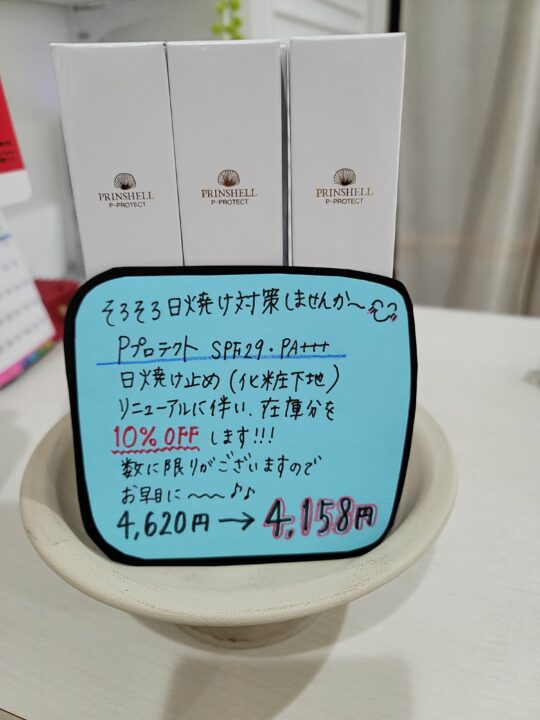 PRINSHELL
P-PROTECT
PRINSHELL
P-PROTECT
PRINSHELL
P-PROTECT
そろそろ日焼け対策しませんか〜
Pプロテクト SPF29・PA+++
日焼け止め(化粧下地)
リニューアルに伴い、在庫分を
10%OFFします!!!
数に限りがございますので
お早目に〜〜〜♪♪
4,620円→4,158円